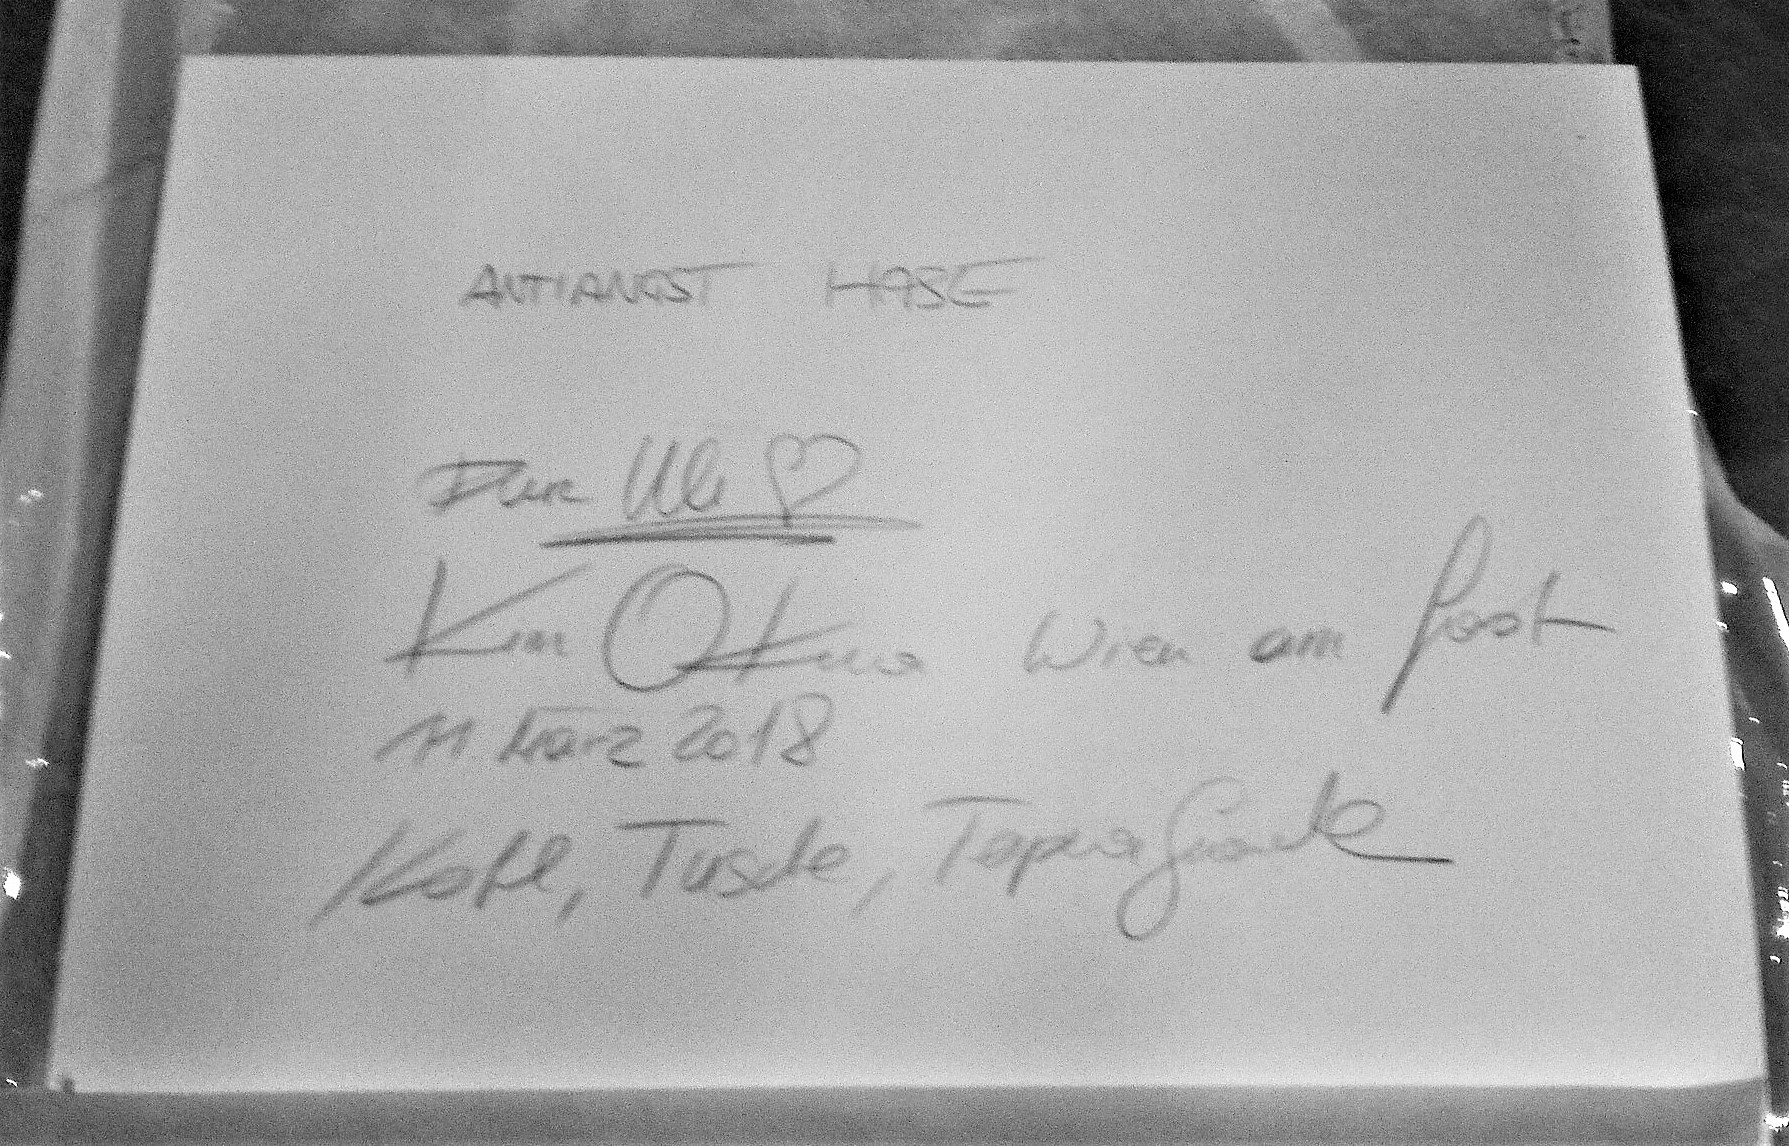 ANTIANGST HASE
Für Uli ♡
Kim Okura Wien am
11 März 2018
Kohle, Tusche,